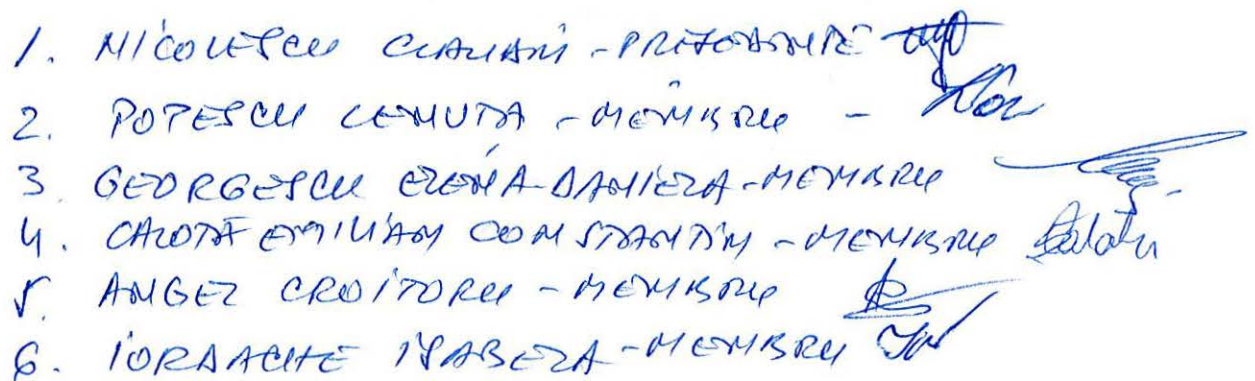 1. NICOLESCU - PREȘEDINTE
2. POPESCU LENUȚA - MEMBRU -
3. GEORGESCU ELENA-DANIELA - MEMBRU
4. CALOTĂ EMILIAN CONSTANTIN - MEMBRU Calotă
5. ANGEL CROITORU - MEMBRU
6. IORDACHE ISABELA - MEMBRU